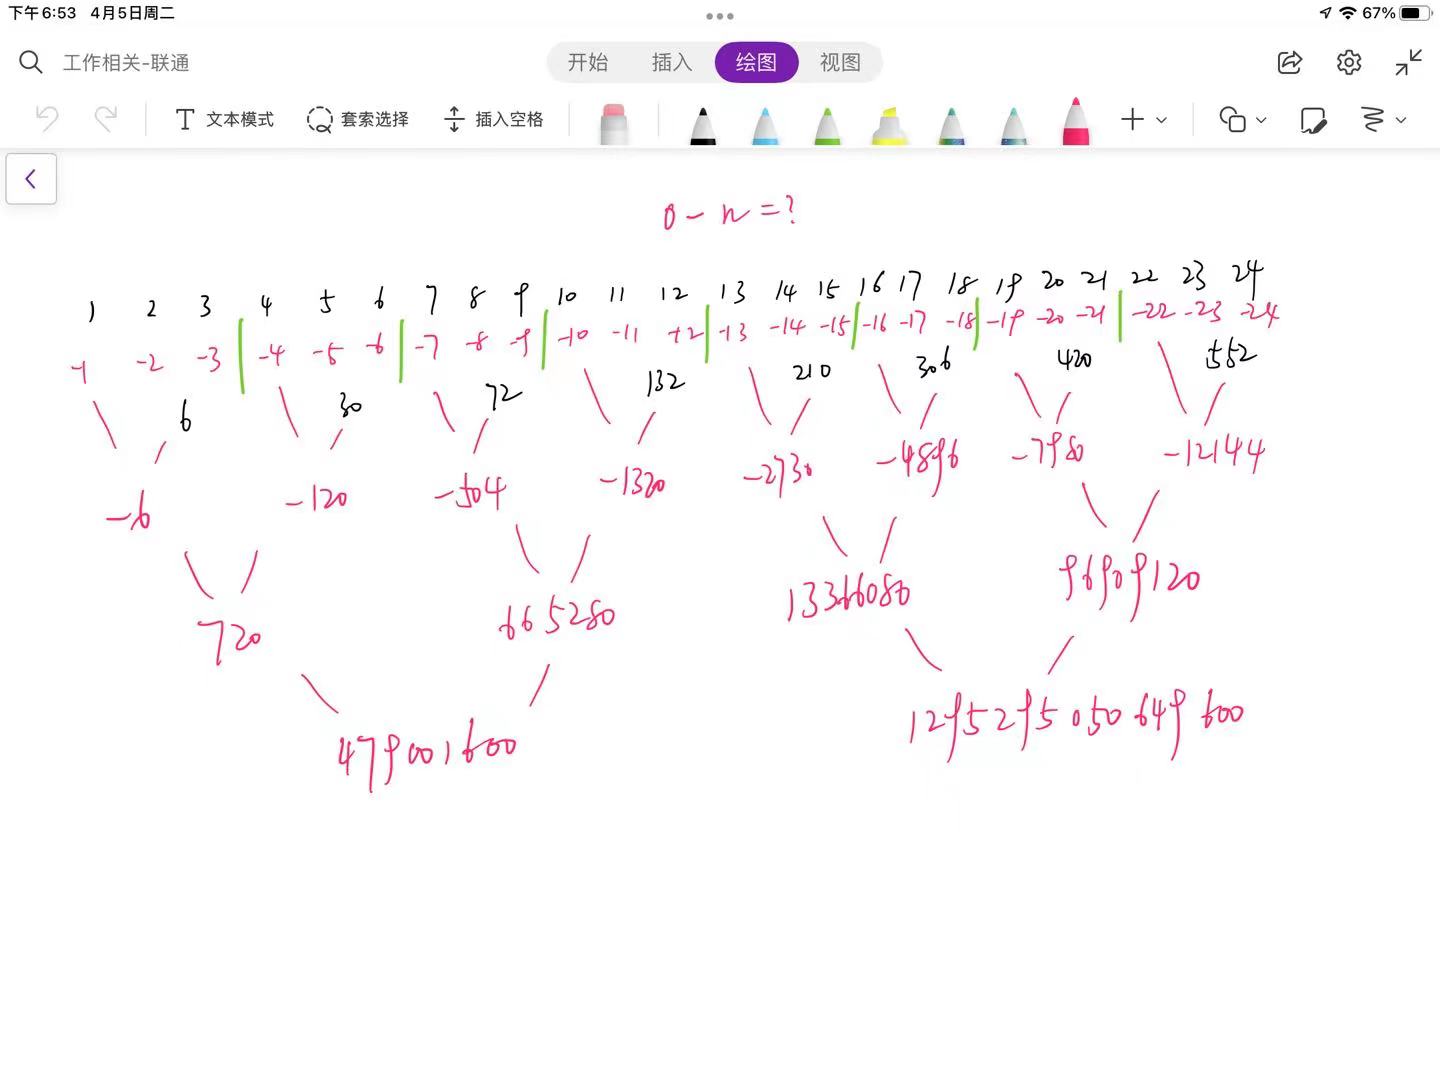 下午6:53 4月5日周二 67%
工作相关-联通 开始 插入 绘图 视图
文本模式 套索选择 插入空格
0-n=?
1 2 3 4 5 6 7 8 9 10 11 12 13 14 15 16 17 18 19 20 21 22 23 24
-1 -2 -3 -4 -5 -6 -7 -8 -9 -10 -11 +2 -13 -14 -15 -16 -17 -18 -19 -20 -21 -22 -23 -24
6 30 72 132 210 306 420 552
-6 -120 -504 -1320 -2730 -4896 -7980 -12144
720 665280 13366080 96909120
479001600 1295295050649600